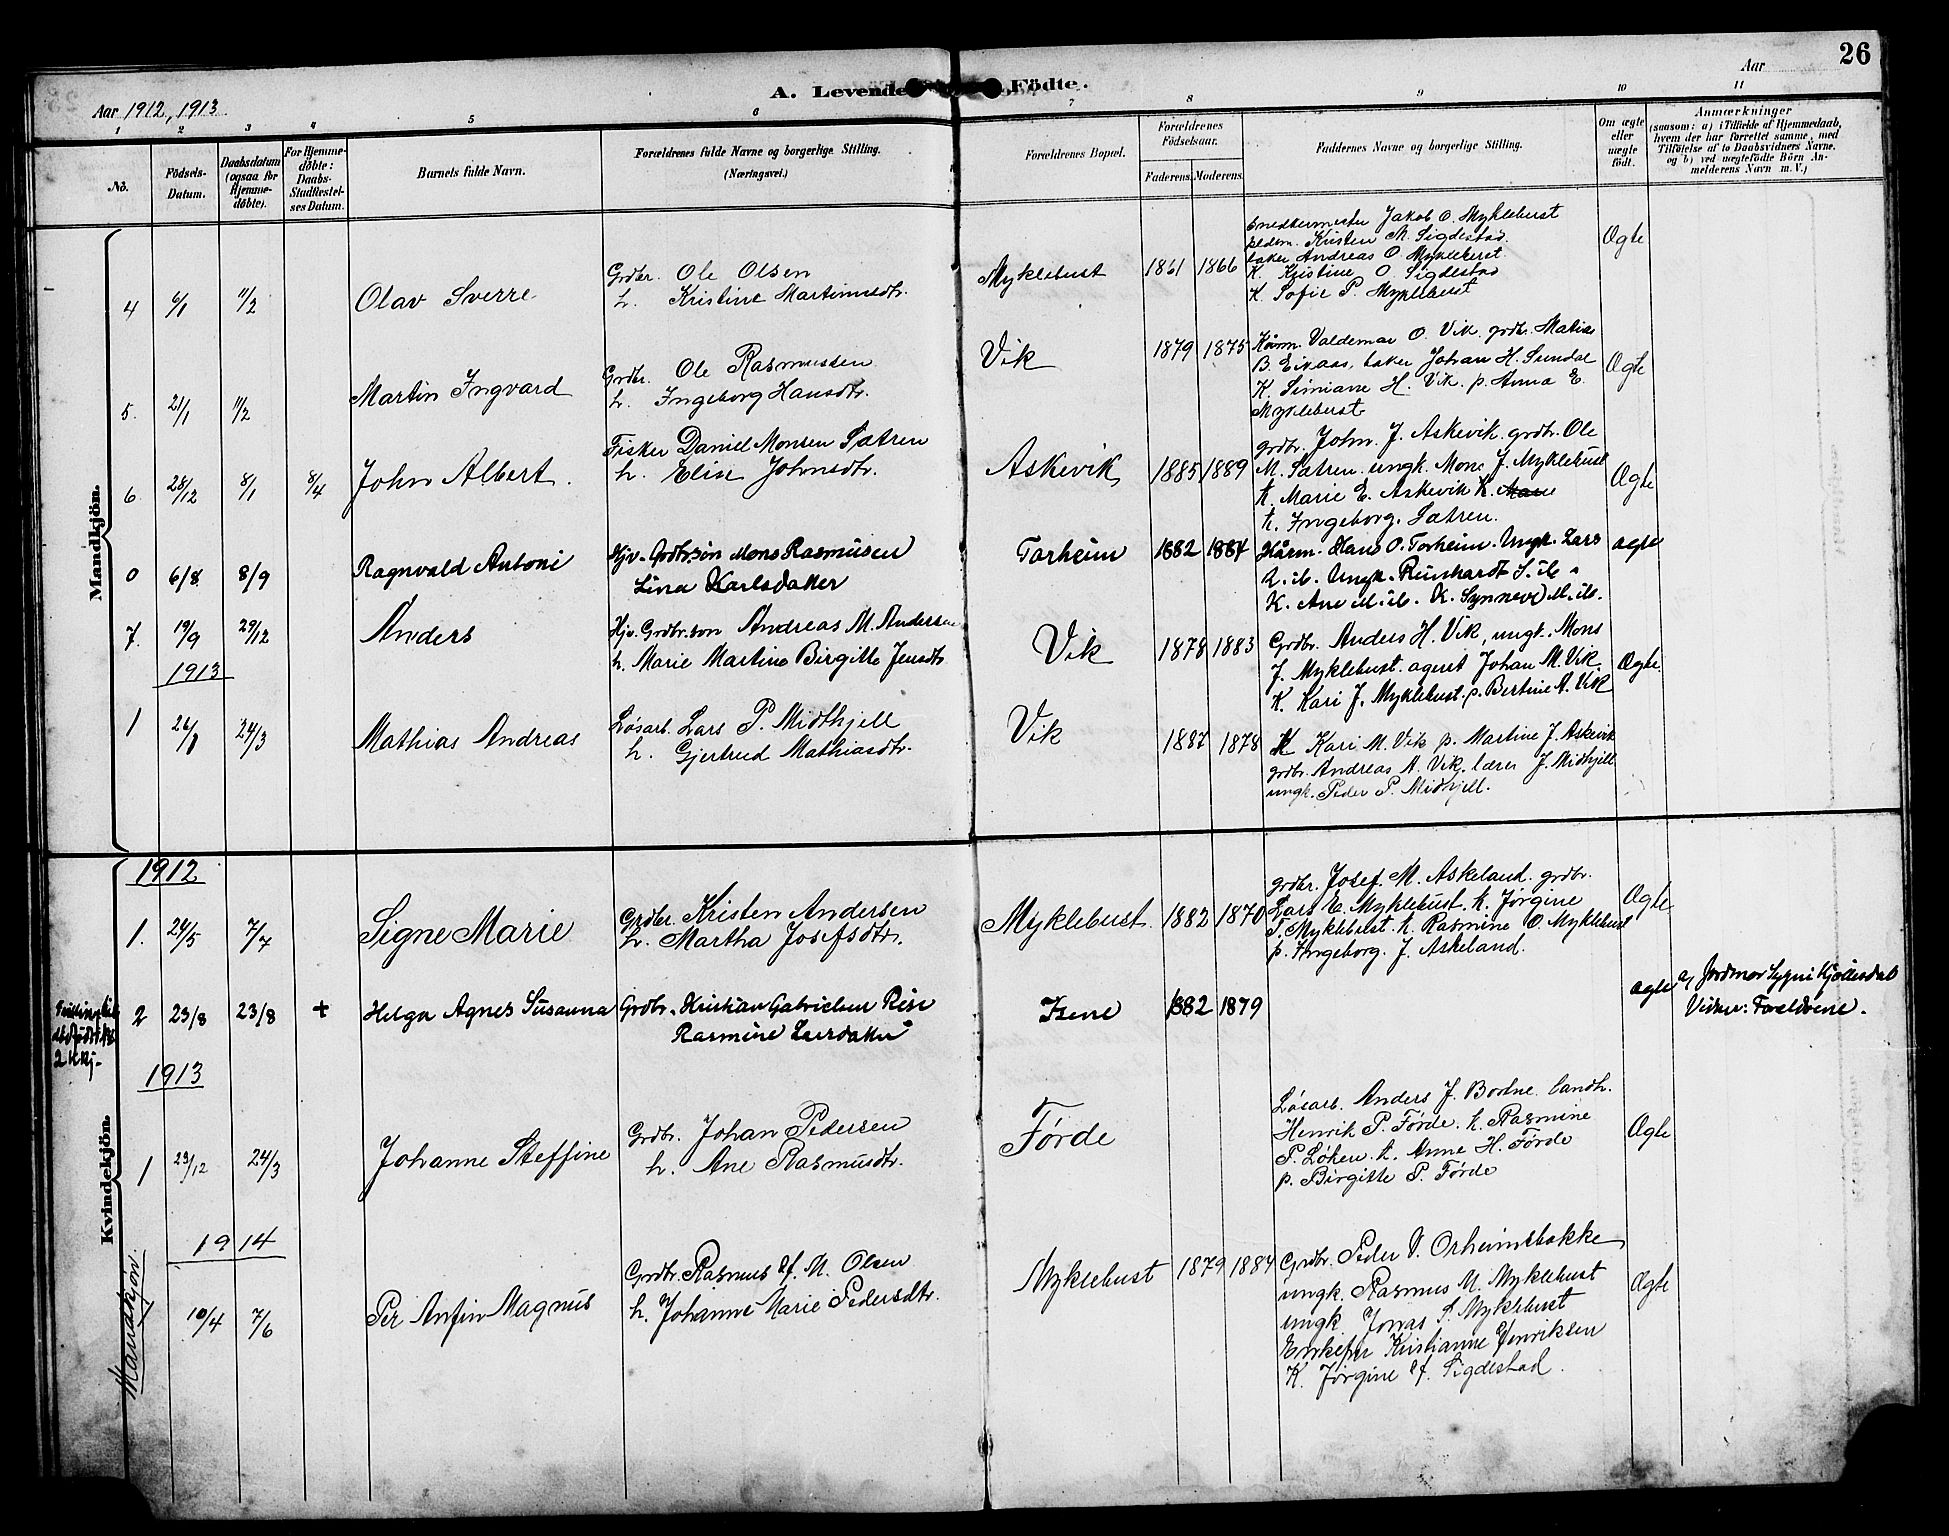 26
Aar 1912, 1913.
A. Levende Födte.
Aar
1 2 3 4 5 6 7 8 9 10 11
No.
Födsels-Datum.
Daabsdatum (ogsaa for Hjemme-döbte).
For Hjemme-döbte: Daabs-Stadfæstel-ses Datum.
Barnets fulde Navn.
Forældrenes fulde Navne og borgerlige Stilling.
(Næringsvei.)
Forældrenes Bopæl.
Forældrenes Födselsaar.
Faderens. Moderens.
Faddernes Navne og borgerlige Stilling.
Om ægte eller uægte födt.
Anmærkninger
(saasom: a) i Tilfælde af Hjemmedaab, hvem der har forrettet samme, med Tilföielse af to Daabsvidners Navne, og b) ved uægtefödte Börn An-melderens Navn m. V.)
Mandkjön.
4 6/1 11/2 Olav Sverre
Grdbr. Ole Olsen
h. Kristine Martinusdtr.
Myklebust 1861 1866
Snedkermester Jakob O. Myklebust
Kristen M. Sigdestad.
baker Andreas O. Myklebust
K. Kristine O. Sigdestad
K. Sofie P. Myklebust
Ægte
5. 21/1 11/2 Martin Ingvard
Grdbr. Ole Rasmussen
h. Ingeborg Hansdtr.
Vik 1879 1875
Kårm. Valdemar O. Vik. grdbr. Matias
B. Eikaas, baker Johan H. Sundal
K. Simiane H. Vik. p. Anna E.
Myklebust
Ægte
6. 28/12 8/1 8/4 John Albert.
Fisker Daniel Monsen Sætren
h. Elise Johnsdtr.
Askevik 1885 1889
grdbr. John. J. Askevik. grdbr. Ole
M. Sætren. ungk. Mons J. Myklebust
k. Marie E. Askevik K. Marie
k. Ingeborg. Sætren.
Ægte
0 6/8 8/9 Ragnvald Antoni
Hjv. Grdbr.søn Mons Rasmusen
Lina Karlsdatter
Torheim 1882 1884
Kårm. Hans O. Torheim. Ungk. Lars
ib. Ungk. Reinhardt S. ib.
K. Ane M. ib. K. Synneve M. ib.
ægte
7. 19/9 29/12 Anders
Hjv. Grdbr.son Andreas M. Andersen
h. Marie Martine Birgitte Jensdtr
Vik 1878 1883
Grdbr. Anders H. Vik, ungk. Mons
J. Myklebust. agent Johan M. Vik
K. Kari J. Myklebust. p. Bertine A. Vik
Ægte.
1913
1 26/1 24/3 Mathias Andreas
Løsarb. Lars P. Midthjell
h. Gjertrud Mathiasdtr.
Vik 1887 1878
K Kari M. Vik p. Martine J. Askevik
grdbr. Andreas A. Vik, lærer J. Midhjell
ungk. Peder P. Midhjell.
Kvindekjön.
1912
1. 24/5 7/7 Signe Marie
Grdbr. Kristen Andersen
h. Martha Josefsdtr.
Myklebust. 1882 1870
grdbr. Josef. M. Askeland. grdbr.
Lars E. Myklebust. k. Jørgine
T. Myklebust. k. Rasmine O. Myklebust
p. Ingeborg. J. Askeland.
Ægte
2 Kkj.
2 23/8 23/8 + Helga Agnes Susanna
Grdbr. Kristian Gabrielsen Rise
Rasmine Larsdatter
Isene 1882 1879
ægte
a/ Jordmor Sygni Kjøllesdal
Vidner: Forældrene.
1913
1 23/12 24/3 Johanne Steffine
Grdbr. Johan Pedersen
h. Ane Rasmusdtr.
Førde
Løsarb. Anders J. Bortne. landh.
Henrik P. Førde. k. Rasmine
P. Løken. k. Anne H. Førde
p. Birgitte P. Førde
Ægte
1914
Mandkjøn.
1 10/4 7/6 Per Anfin Magnus
Grdbr. Rasmus M. Olsen
h. Johanne Marie Pedersdtr.
Myklebust 1879 1884
Grdbr. Peder V. Orheimsbakke
ungk. Rasmus M. Myklebust
ungk Jonas S. Myklebust
Enkefru Kristianne Henriksen
K. Jørgine Sigdestad.
Ægte